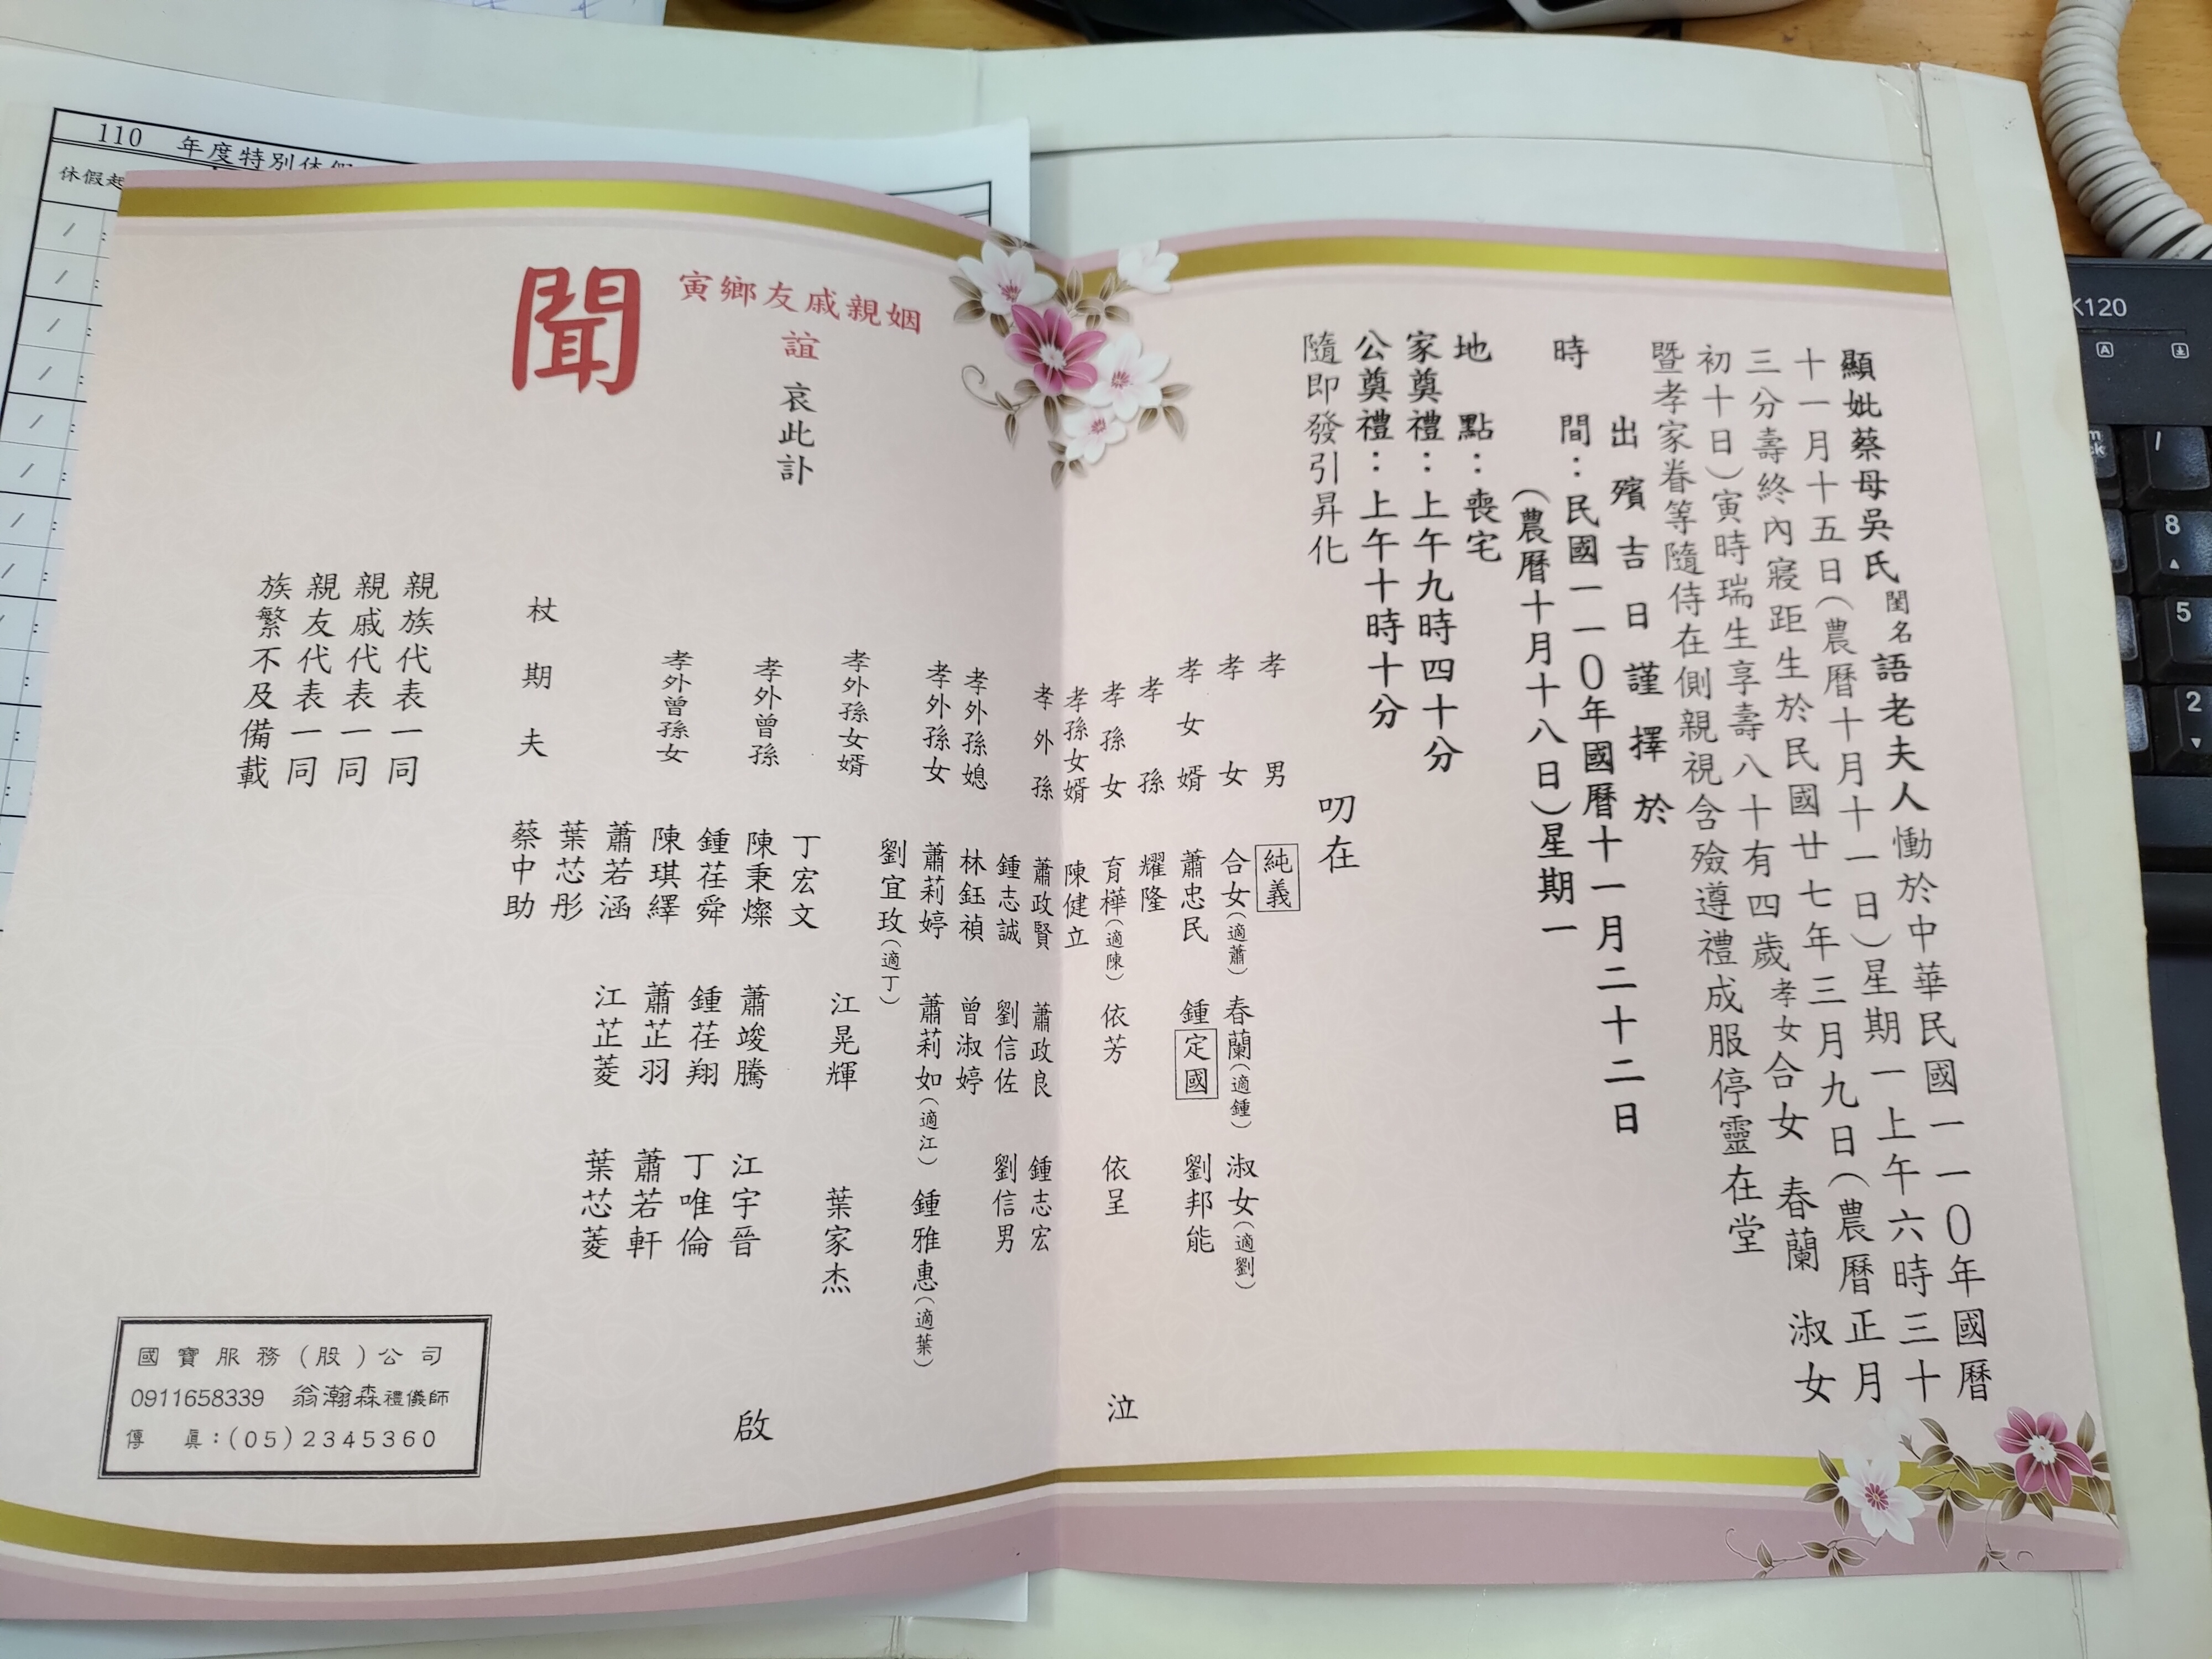 顯妣蔡母吳氏閨名語老夫人慟於中華民國一一0年國曆
十一月十五日(農曆十月十一日)星期一上午六時三十
三分壽終內寢距生於民國廿七年三月九日(農曆正月
初十日)寅時瑞生享壽八十有四歲孝女合女 春蘭 淑女
暨孝家眷等隨侍在側親視含殮遵禮成服停靈在堂
出殯吉日謹擇於
時 間:民國一一0年國曆十一月二十二日
(農曆十月十八日)星期一
地 點:喪宅
家奠禮:上午九時四十分
公奠禮:上午十時十分
隨即發引昇化
叨在
孝男 純義
孝女 合女(適蕭) 春蘭(適鍾) 淑女(適劉)
孝女婿 蕭忠民 鍾定國 劉邦能
孝孫 耀隆
孝孫女 育樺(適陳) 依芳 依呈
孝孫女婿 陳健立
孝外孫 蕭政賢 蕭政良 鍾志宏
鍾志誠 劉信佐 劉信男
孝外孫媳 林鈺禎 曾淑婷
孝外孫女 蕭莉婷 蕭莉如(適江) 鍾雅惠(適葉)
劉宜玫(適丁)
孝外孫女婿 江晃輝 葉家杰
丁宏文
孝外曾孫 陳秉燦 蕭竣騰 江宇晉
鍾荏舜 鍾荏翔 丁唯倫
孝外曾孫女 陳琪繹 蕭芷羽 蕭若軒
蕭若涵 江芷菱 葉芯菱
葉芯彤
杖期夫 蔡中助
泣
啟
姻親戚友鄉寅
誼
哀此訃
聞
親族代表一同
親戚代表一同
親友代表一同
族繁不及備載
國寶服務(股)公司
0911658339 翁瀚森禮儀師
傳 真:(05)2345360
110 年度特別休假
休假起
K120
8
5
2